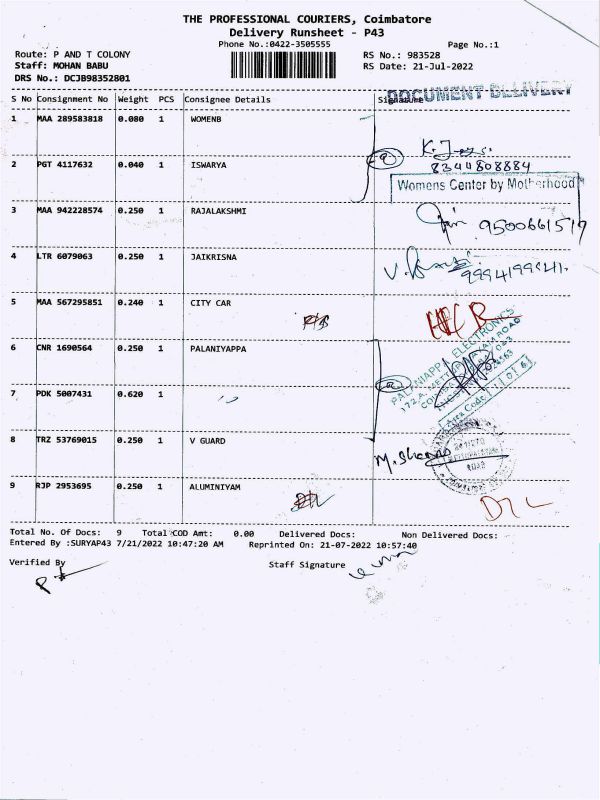 THE PROFESSIONAL COURIERS, Coimbatore
Delivery Runsheet - P43
Phone No.:0422-3505555
Page No.:1
Route: P AND T COLONY
RS No.: 983528
Staff: MOHAN BABU
RS Date: 21-Jul-2022
DRS No.: DCJB98352801
DOCUMENT DELIVERY
S No Consignment No Weight PCS Consignee Details Signature
1 MAA 289583818 0.080 1 WOMENB
8344808884
2 PGT 4117632 0.040 1 ISWARYA
Womens Center by Motherhood
3 MAA 942228574 0.250 1 RAJALAKSHMI
9500661519
4 LTR 6079063 0.250 1 JAIKRISNA
5 MAA 567295851 0.240 1 CITY CAR
6 CNR 1690564 0.250 1 PALANIYAPPA
PALANIAPPA ELECTRONICS
Area Code
7 PDK 5007431 0.620 1
8 TRZ 53769015 0.250 1 V GUARD
9 RJP 2953695 0.250 1 ALUMINIYAM
Total No. Of Docs: 9 Total COD Amt: 0.00 Delivered Docs: Non Delivered Docs:
Entered By :SURYAP43 7/21/2022 10:47:20 AM Reprinted On: 21-07-2022 10:57:40
Verified By Staff Signature